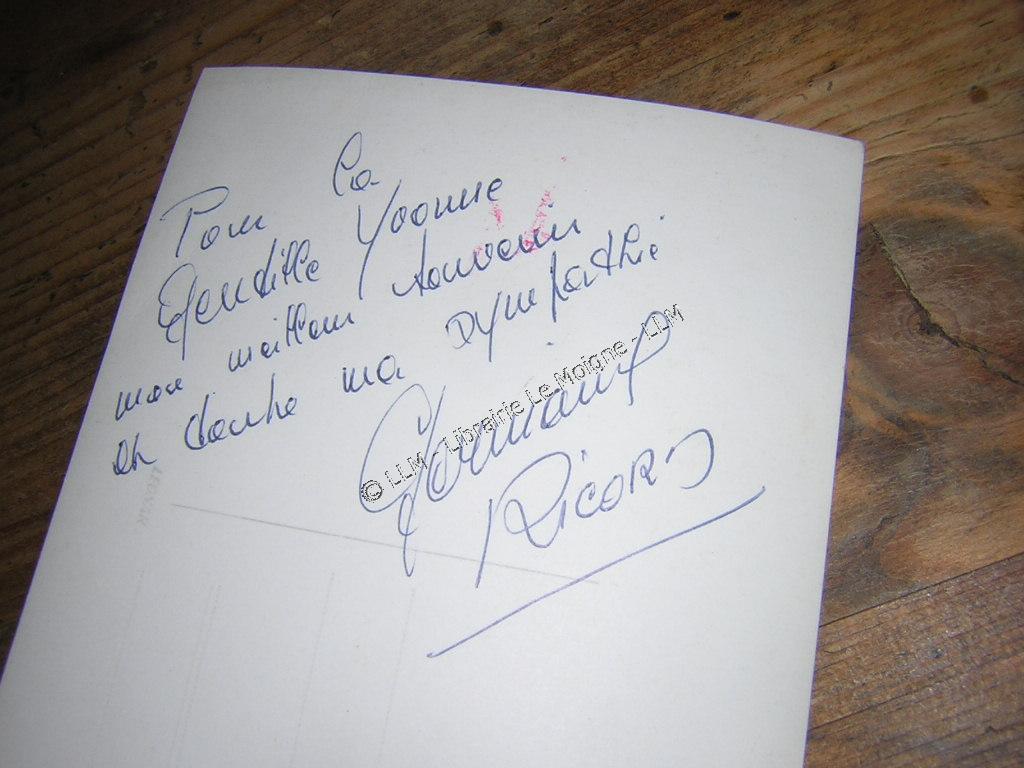 Pour la
Gentille Yvonne
mon meilleur souvenir
et toute ma sympathie
Germaine
RicoRD
© LLM - Librairie Le Moigne - LLM